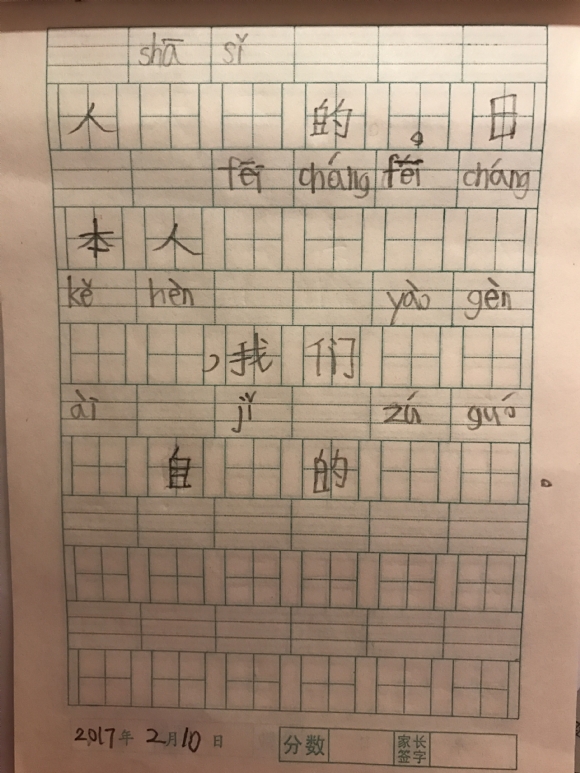 shā sǐ
人 的 。 日
fēi cháng fēi cháng
本 人
kě hèn yào gèn
, 我 们
ài jǐ zú guó
自 的 。
2017年 2月10日 分数 家长签字